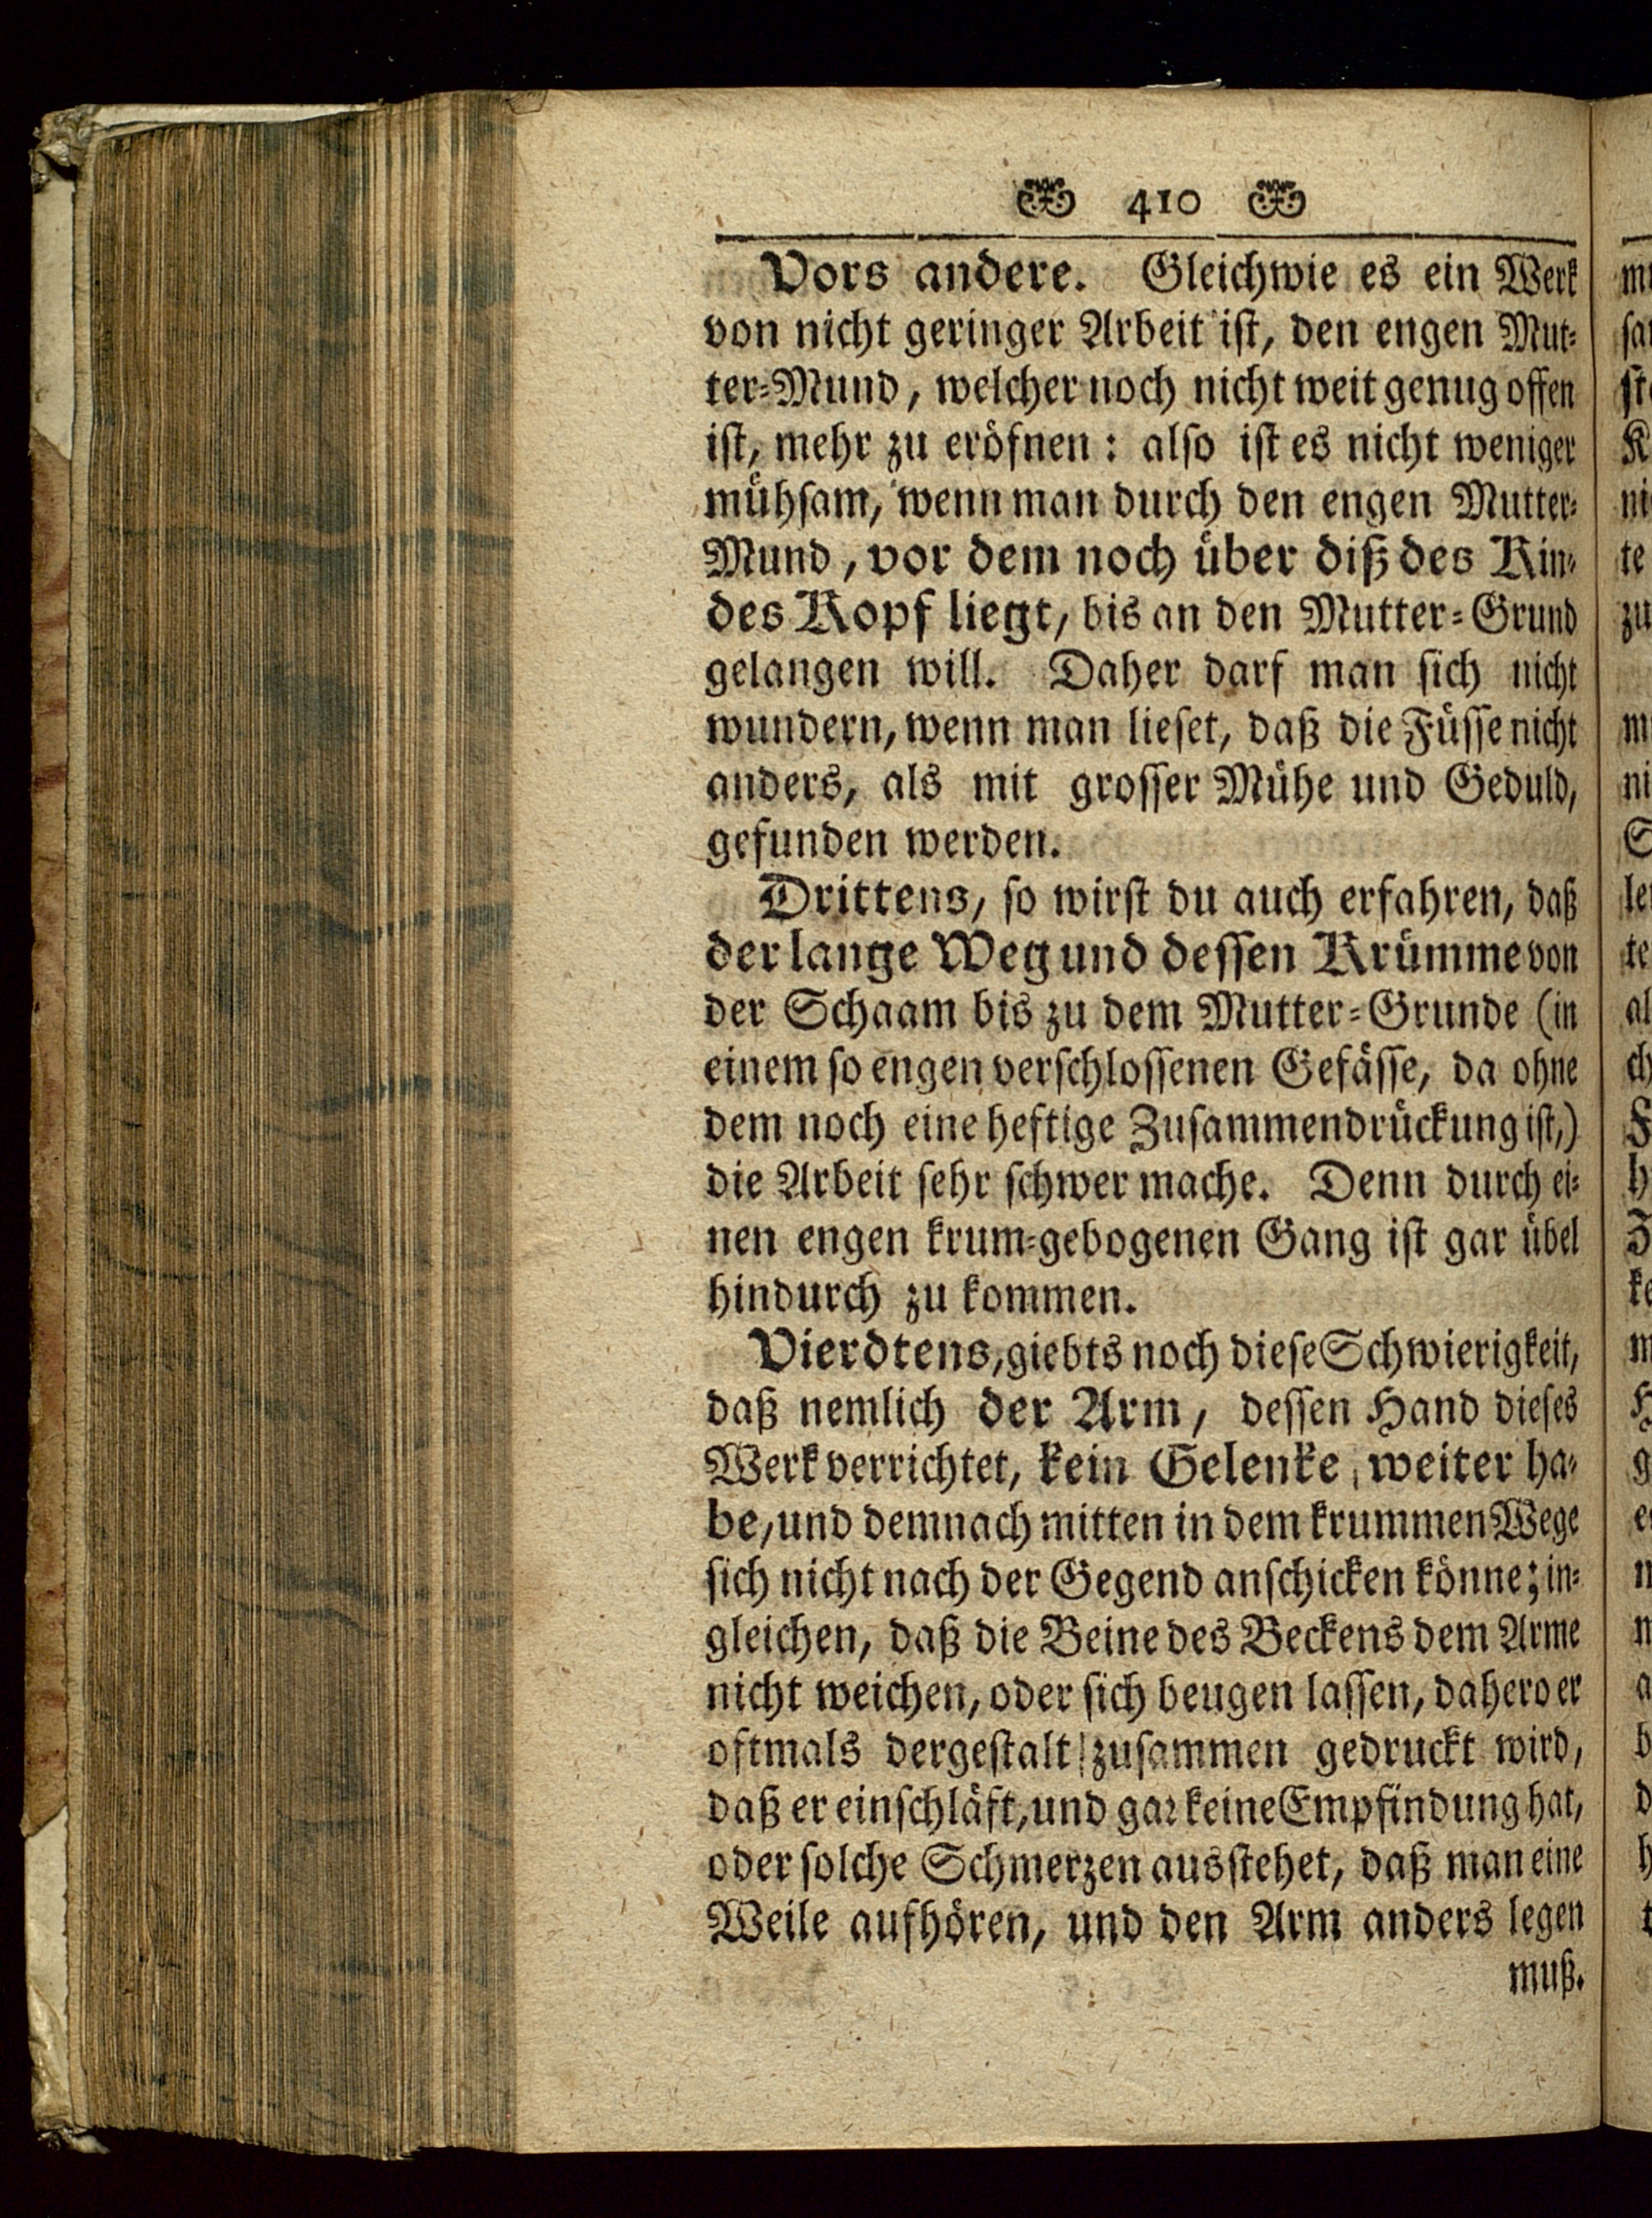 410
Vors andere. Gleichwie es ein Werk
von nicht geringer Arbeit ist, den engen Mut-
ter-Mund, welcher noch nicht weit genug offen
ist, mehr zu eröfnen: also ist es nicht weniger
mühsam, wenn man durch den engen Mutter-
Mund, vor dem noch über diß des Kin-
des Kopf liegt, bis an den Mutter-Grund
gelangen will. Daher darf man sich nicht
wundern, wenn man lieset, daß die Füsse nicht
anders, als mit grosser Mühe und Geduld,
gefunden werden.
Drittens, so wirst du auch erfahren, daß
der lange Weg und dessen Krümme von
der Schaam bis zu dem Mutter-Grunde (in
einem so engen verschlossenen Gefässe, da ohne
dem noch eine heftige Zusammendrückung ist,)
die Arbeit sehr schwer mache. Denn durch ei-
nen engen krum-gebogenen Gang ist gar übel
hindurch zu kommen.
Vierdtens, giebts noch diese Schwierigkeit,
daß nemlich der Arm, dessen Hand dieses
Werk verrichtet, kein Gelenke, weiter ha-
be, und demnach mitten in dem krummen Wege
sich nicht nach der Gegend anschicken könne; in-
gleichen, daß die Beine des Beckens dem Arme
nicht weichen, oder sich beugen lassen, dahero er
oftmals dergestalt zusammen gedruckt wird,
daß er einschläft, und gar keine Empfindung hat,
oder solche Schmerzen ausstehet, daß man eine
Weile aufhören, und den Arm anders legen
muß.